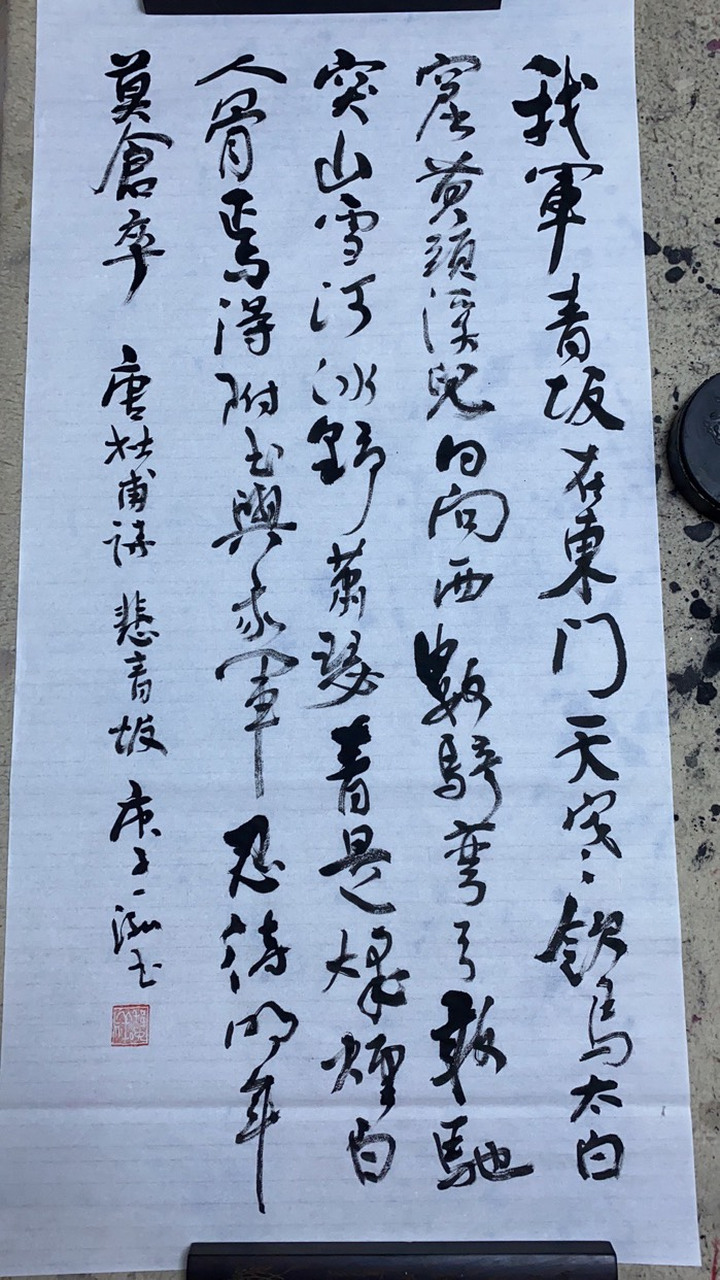 我軍青坂在東門天寒飲馬太白
窟黄頭溪兒日向西數騎彎弓敢馳
突山雪河冰野蕭瑟青是烽煙白
人骨焉得附书與我軍忍待明年
莫倉卒 唐杜甫詩 悲青坂 庚子一泓书